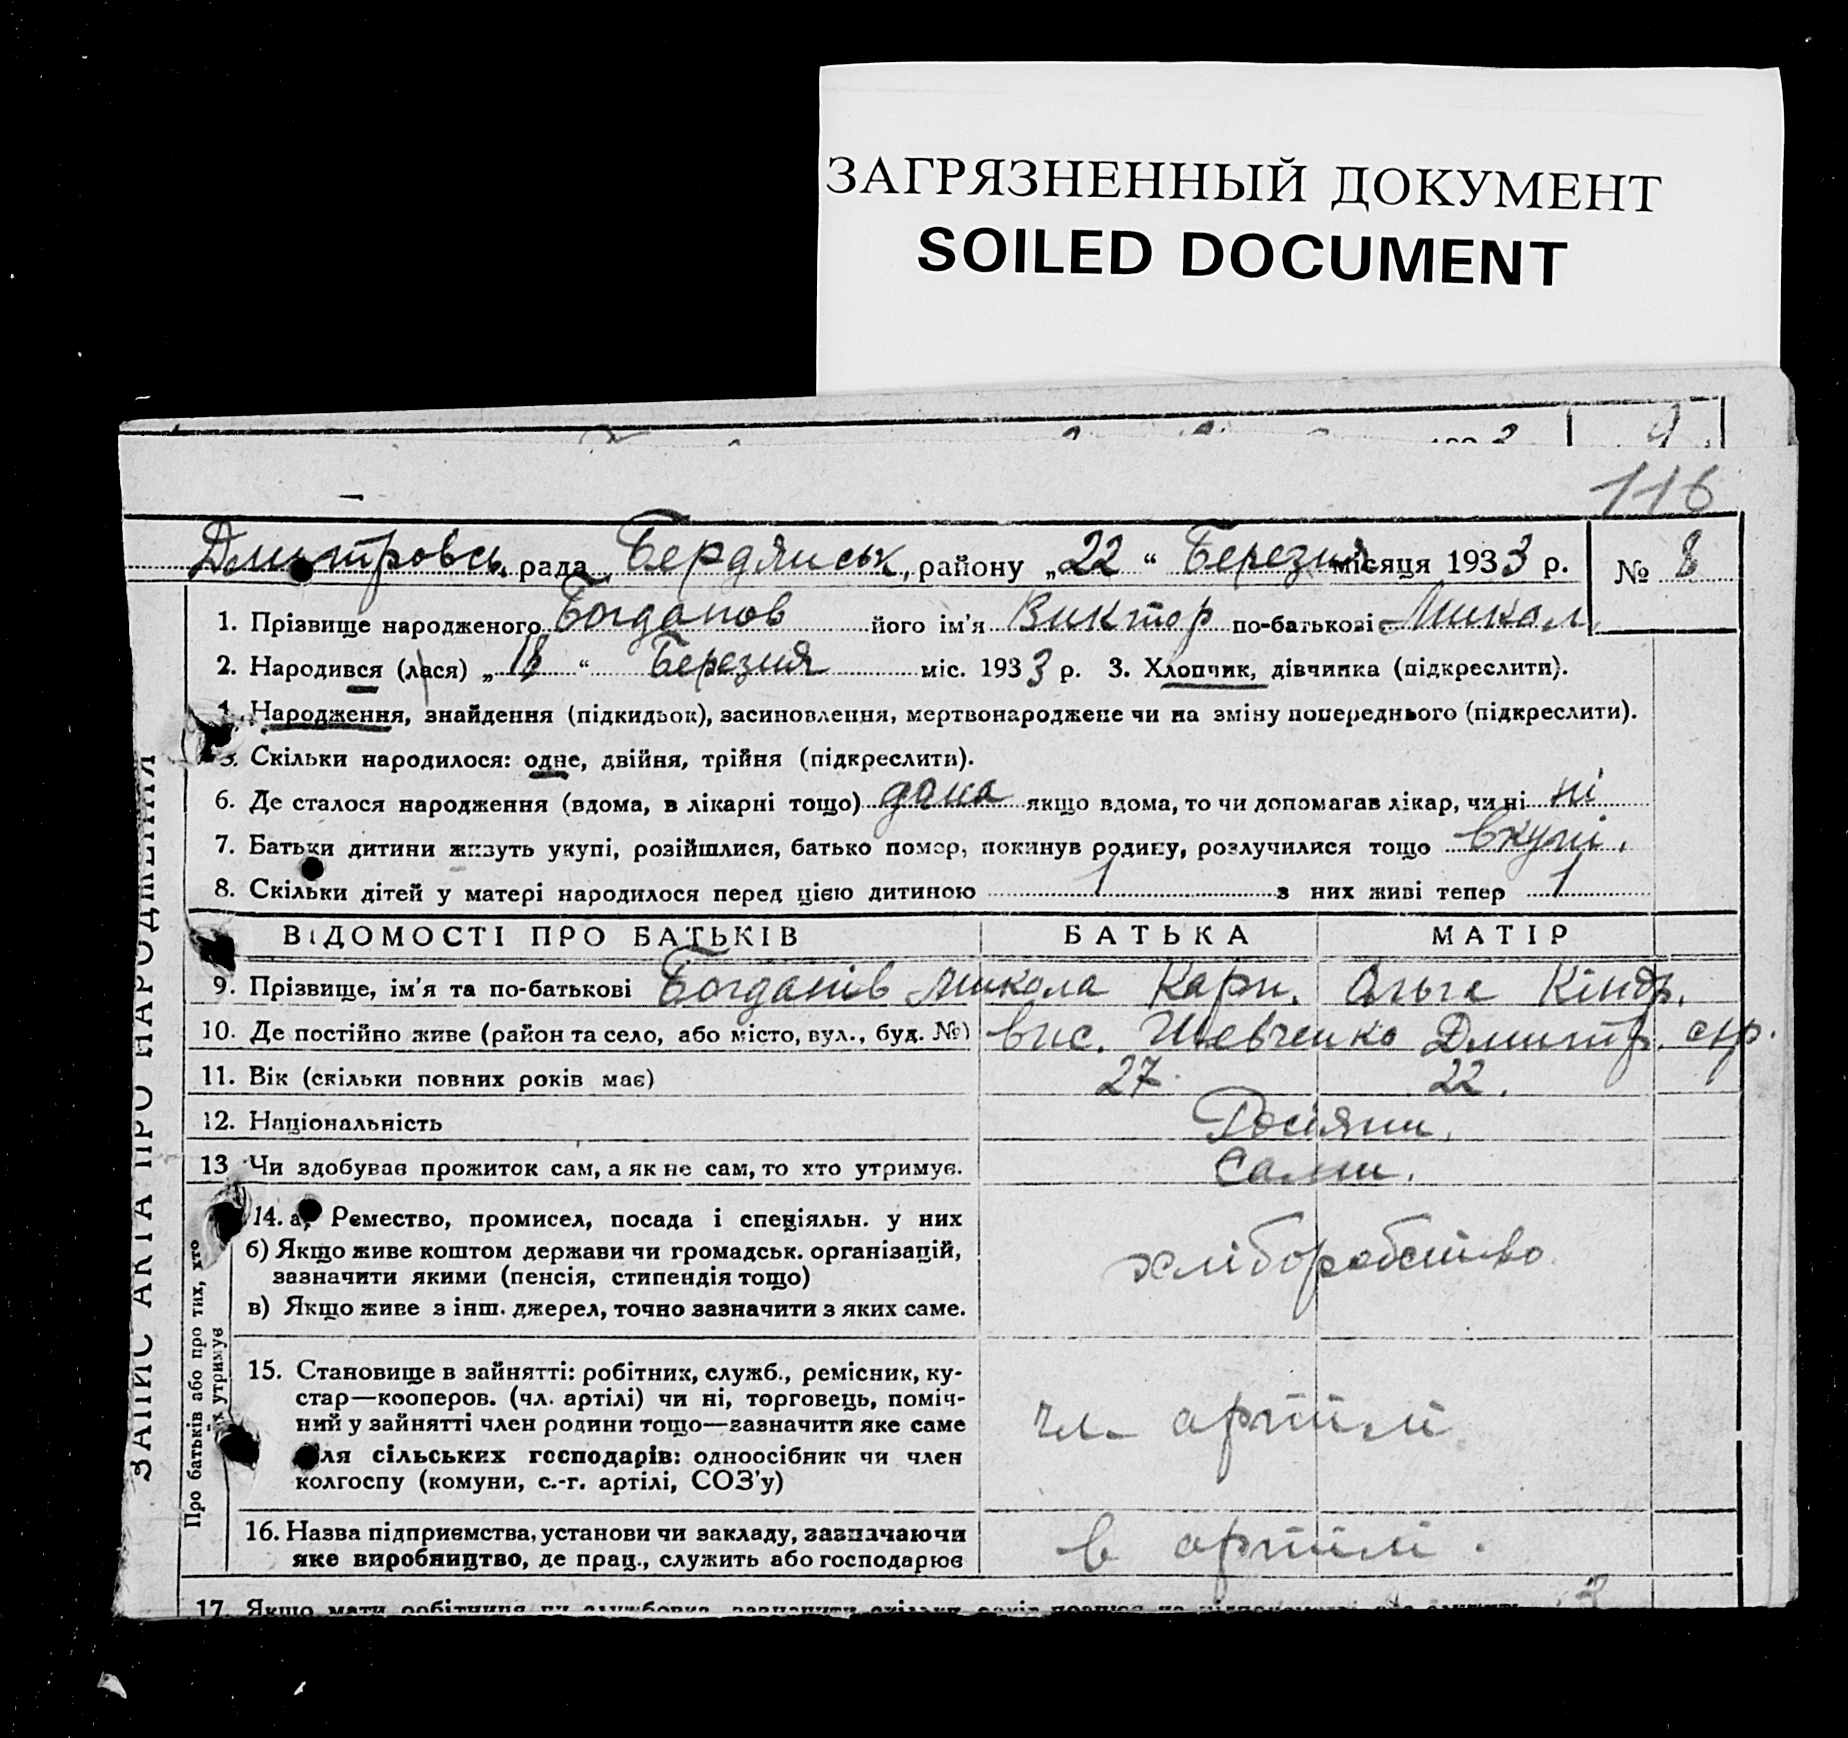 ЗАГРЯЗНЕННЫЙ ДОКУМЕНТ
SOILED DOCUMENT
116
Дмитровсь. рада Бердянськ, району „22 “ Березня місяця 1933 р. № 8
1. Прізвище народженого Богданов його ім'я Виктор по-батькові Микол.
2. Народився (лася) „18 “ Березня міс. 1933 р. 3. Хлопчик, дівчинка (підкреслити).
4. Народження, знайдення (підкидьок), засиновлення, мертвонароджене чи на зміну попереднього (підкреслити).
5. Скільки народилося: одне, двійня, трійня (підкреслити).
6. Де сталося народження (вдома, в лікарні тощо) дома якщо вдома, то чи допомагав лікар, чи ні ні
7. Батьки дитини живуть укупі, розійшлися, батько помер, покинув родину, розлучилися тощо вкупі.
8. Скільки дітей у матері народилося перед цією дитиною 1 з них живі тепер 1
ВІДОМОСТІ ПРО БАТЬКІВ БАТЬКА МАТІР
9. Прізвище, ім'я та по-батькові Богданів Микола Карп. Ольга Кіндр.
10. Де постійно живе (район та село, або місто, вул., буд. №) вис. Шевченко Дмитр. с/р.
11. Вік (скільки повних років має) 27. 22.
12. Національність Росіяни.
13 Чи здобуває прожиток сам, а як не сам, то хто утримує. Сами.
14. а) Ремество, промисел, посада і спеціяльн. у них
б) Якщо живе коштом держави чи громадськ. організацій,
зазначити якими (пенсія, стипендія тощо) хліборобство
в) Якщо живе з інш. джерел, точно зазначити з яких саме.
15. Становище в зайнятті: робітник, служб., ремісник, ку-
стар—кооперов. (чл. артілі) чи ні, торговець, поміч-
ний у зайнятті член родини тощо—зазначити яке саме чл. артілі
для сільських господарів: одноосібник чи член
колгоспу (комуни, с.-г. артілі, СОЗ'у)
16. Назва підприємства, установи чи закладу, зазначаючи
яке виробництво, де прац., служить або господарює в артілі.
17. Якщо мати робітниця чи службовка, зазначити скільки
ЗАПИС АКТА ПРО НАРОДЖЕННЯ
Про батьків або про тих, хто
їх утримує